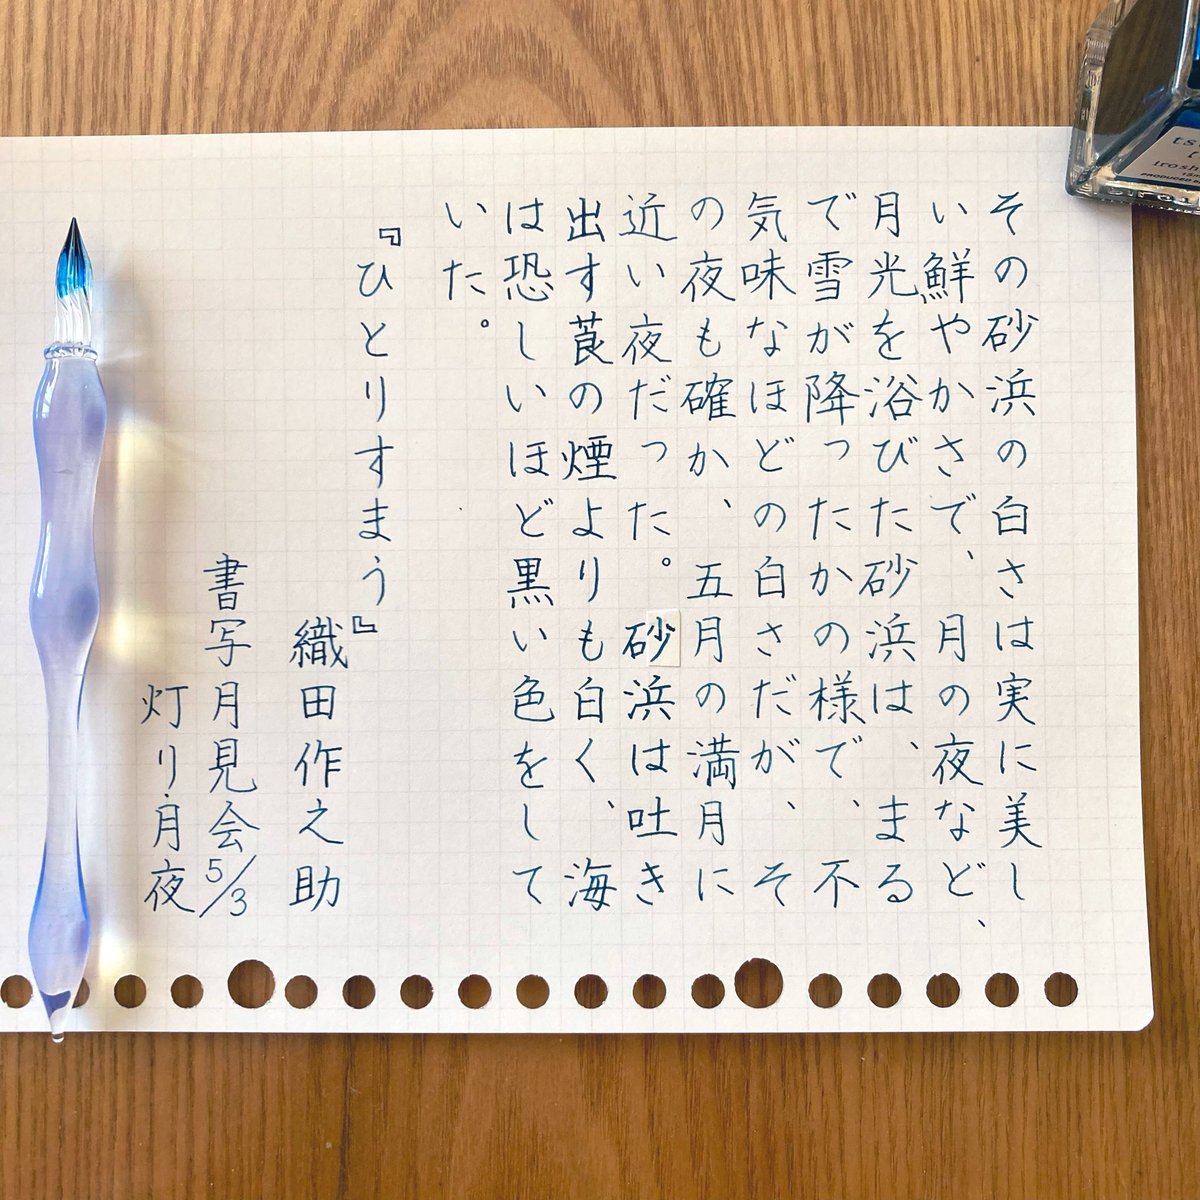 その砂浜の白さは実に美し
い鮮やかさで、月の夜など、
月光を浴びた砂浜は、まる
で雪が降ったかの様で、不
気味なほどの白さだが、そ
の夜も確か、五月の満月に
近い夜だった。砂浜は吐き
出す莨の煙よりも白く、海
は恐しいほど黒い色をして
いた。
『ひとりすまう』
織田作之助
書写月見会5/3
灯り月夜